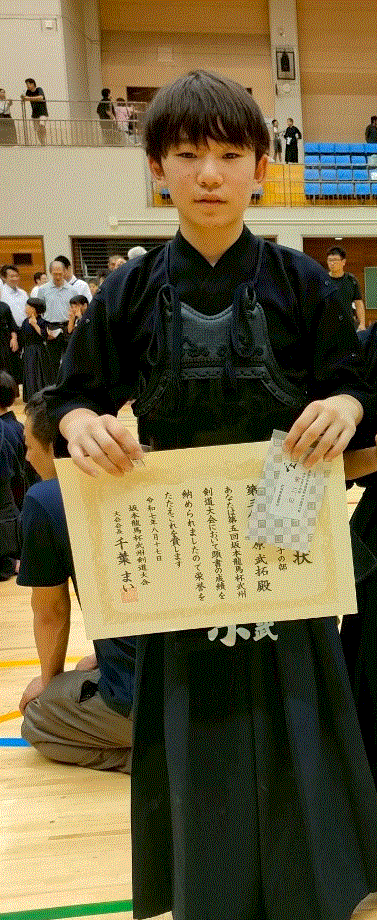 状
子の部
第三
原 武拓 殿
あなたは第五回坂本龍馬杯武州
剣道大会において頭書の成績を
納められましたので栄誉を
たたえこれを賞します
令和七年八月十七日
坂本龍馬杯武州剣道大会
大会会長 千葉 まい
武